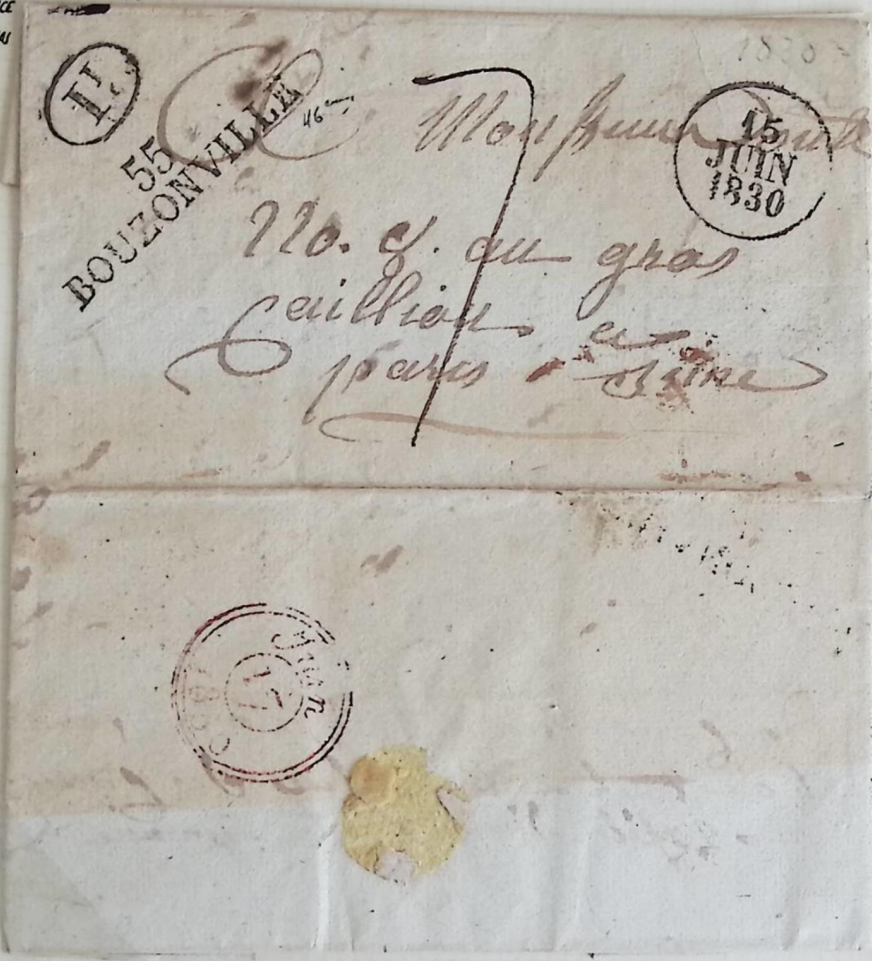 1830
1D
55
BOUZONVILLE
46
7
15
JUIN
1830
Monsieur
No. 9. au gros
Cailliou a
paris Seine
Juin
17
1830